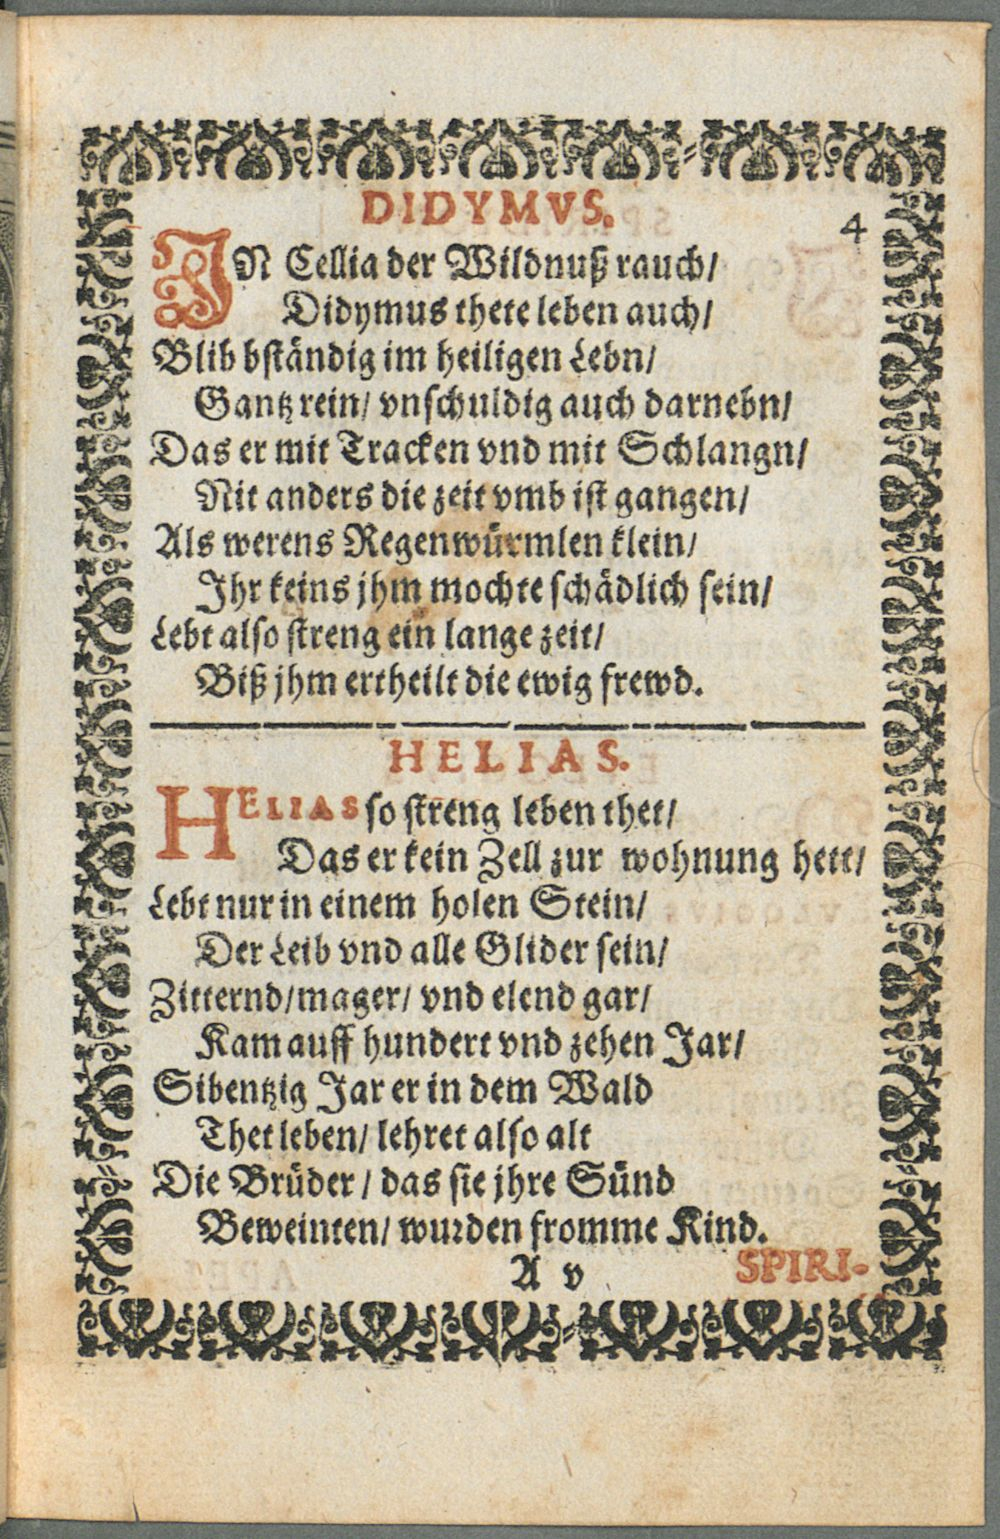 DIDYMVS.
4
IN Cellia der Wildnuß rauch/
Didymus thete leben auch/
Blib bständig im heiligen Lebn/
Gantz rein/ vnschuldig auch darnebn/
Das er mit Tracken vnd mit Schlangn/
Nit anders die zeit vmb ist gangen/
Als werens Regenwürmlen klein/
Ihr keins jhm mochte schädlich sein/
Lebt also streng ein lange zeit/
Biß jhm ertheilt die ewig frewd.
HELIAS.
HELIAS so streng leben thet/
Das er kein Zell zur wohnung hett/
Lebt nur in einem holen Stein/
Der Leib vnd alle Glider sein/
Zitternd/mager/ vnd elend gar/
Kam auff hundert vnd zehen Jar/
Sibentzig Jar er in dem Wald
Thet leben/ lehret also alt
Die Brüder/ das sie jhre Sünd
Beweinten/ wurden fromme Kind.
A v
SPIRI-